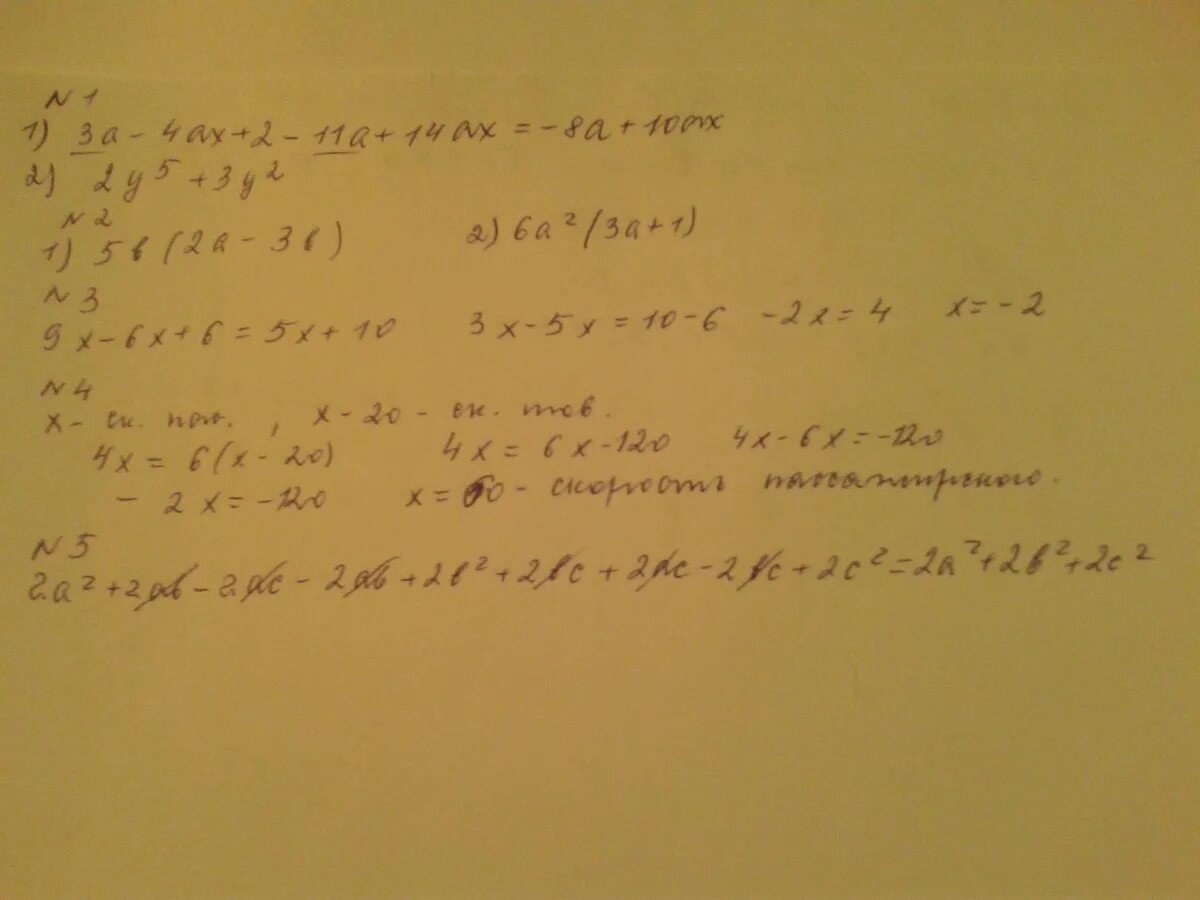 N 1
1) 3a - 4ax + 2 - 11a + 14ax = -8a + 10ax
2) 2y⁵ + 3y²
N 2
1) 5в(2a - 3в)    2) 6a²(3a+1)
N 3
9x - 6x + 6 = 5x + 10    3x - 5x = 10 - 6    -2x = 4    x = -2
N 4
x - ск. пас. , x - 20 - ск. тов.
4x = 6(x - 20)    4x = 6x - 120    4x - 6x = -120
- 2x = -120    x = 60 - скорость пассажирского.
N 5
2a² + 2ав - 2ac - 2ав + 2в² + 2вc + 2ac - 2вc + 2c² = 2a² + 2в² + 2c²